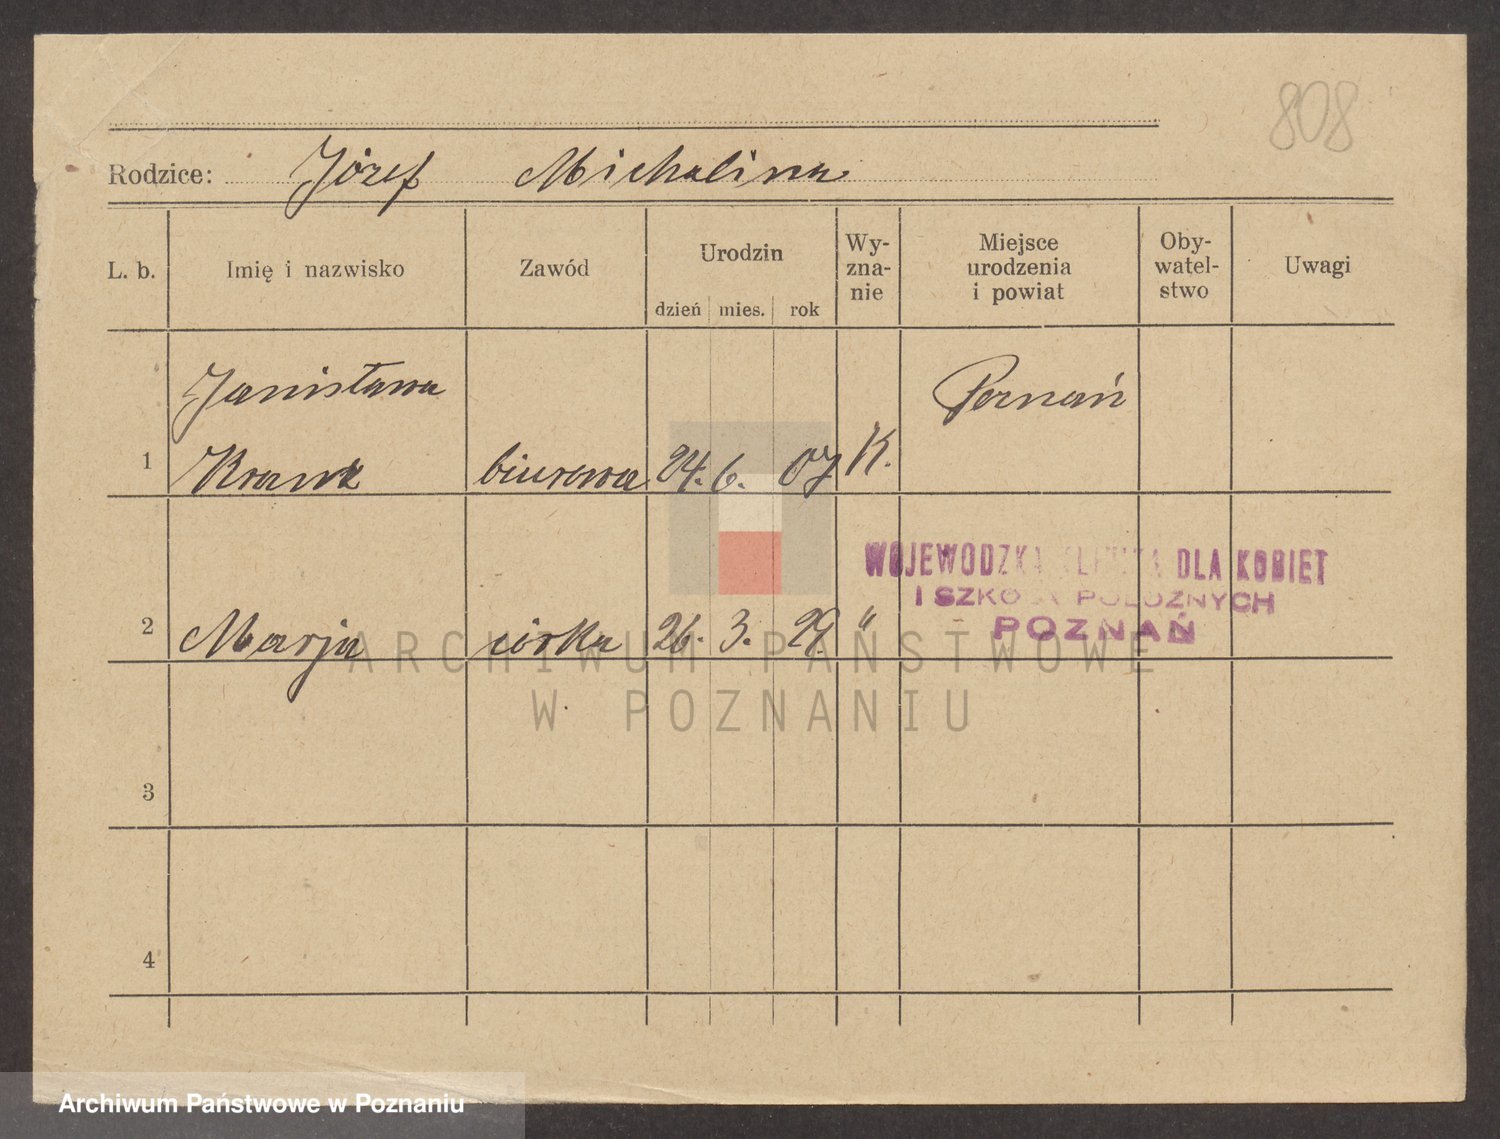 808
Rodzice: Józef Michalina
L. b. Imię i nazwisko Zawód Urodzin dzień mies. rok Wy-zna-nie Miejsce urodzenia i powiat Oby-watel-stwo Uwagi
Janisława Poznań
1 biurowa 24. 6. 07 K.
WOJEWODZKA KLINIKA DLA KOBIET
I SZKOŁA POŁOŻNYCH
POZNAŃ
2 Marja córka 26. 3. 29. "
ARCHIWUM PAŃSTWOWE
W POZNANIU
3
4
Archiwum Państwowe w Poznaniu